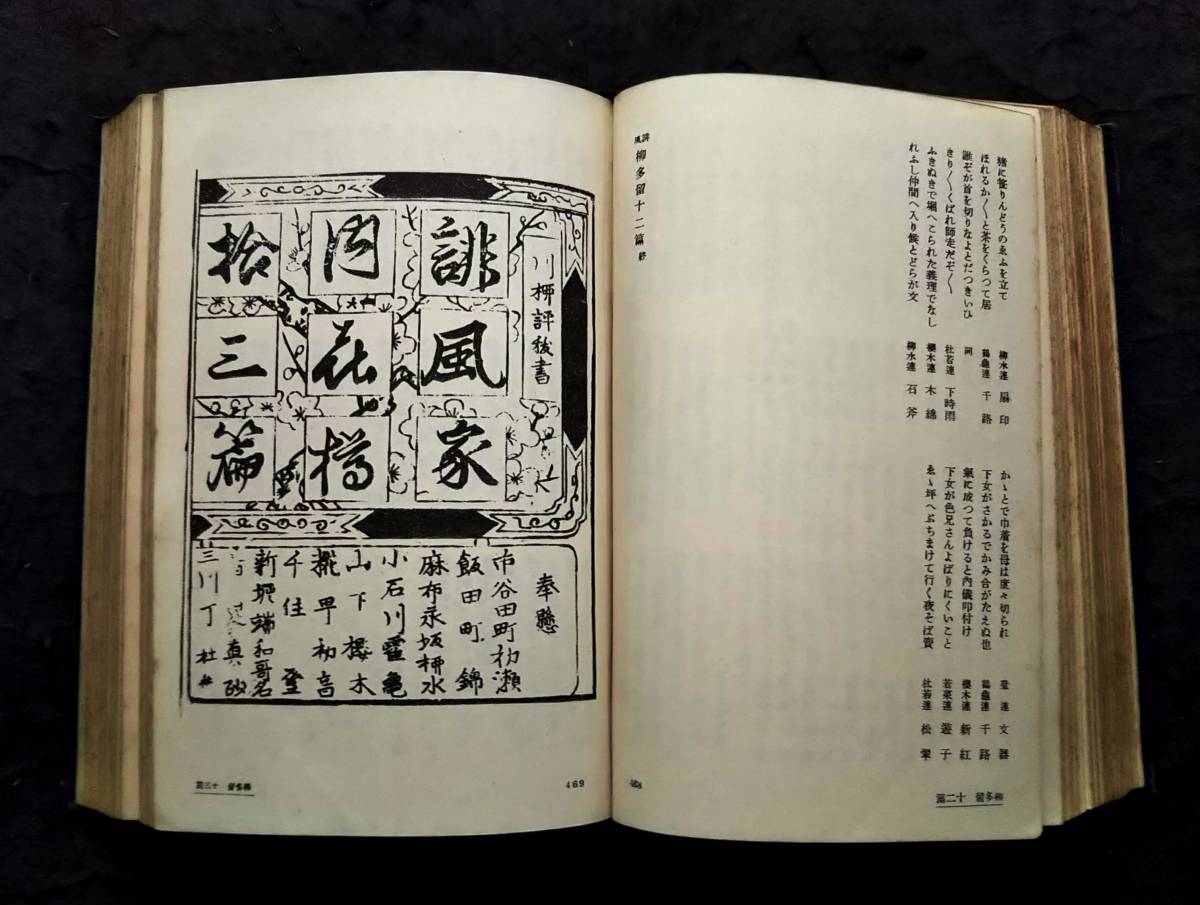 猪に笹りんどうのゑふを立て
柳水連 扇印
ほれるか〱と茶をくらつて居
鶴亀連 千路
誰ぞが首を切りなよとだつきいひ
同
きり〱くばれ師走だぞ〱
杜若連 下時雨
ふきぬきで堀へこられた義理でなし
櫻木連 木綿
れふし仲間へ入り候とどらが文
柳水連 石斧
かゝとで巾着を母は度々切られ
登連 文器
下女がさかるでかみ合がたえぬ也
鶴亀連 千路
氣に成つて負けると内儀叩付け
櫻木連 新紅
下女が色兄さんよばりにくいこと
若菜連 遊子
ゑゝ坪へぶちまけて行く夜そば賣
杜若連 松
誹風 柳多留十二篇 終
468
第二十 留多柳
川柳評秘書
誹風家
内喜樽
拾三篇
奉懸
市谷田町初瀬
飯田町錦
麻布永坂柳水
小石川霍亀
山下櫻木
初音
千住登
新堀端和哥名
三川丁杜
469
第三十 留多柳